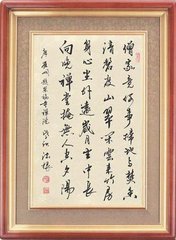 僧家竟何事掃地與焚香
清磬度山翠閒雲來竹房
身心塵外遠歲月坐中長
向晚禪堂掩無人空夕陽
唐崔峒題崇福寺禪院